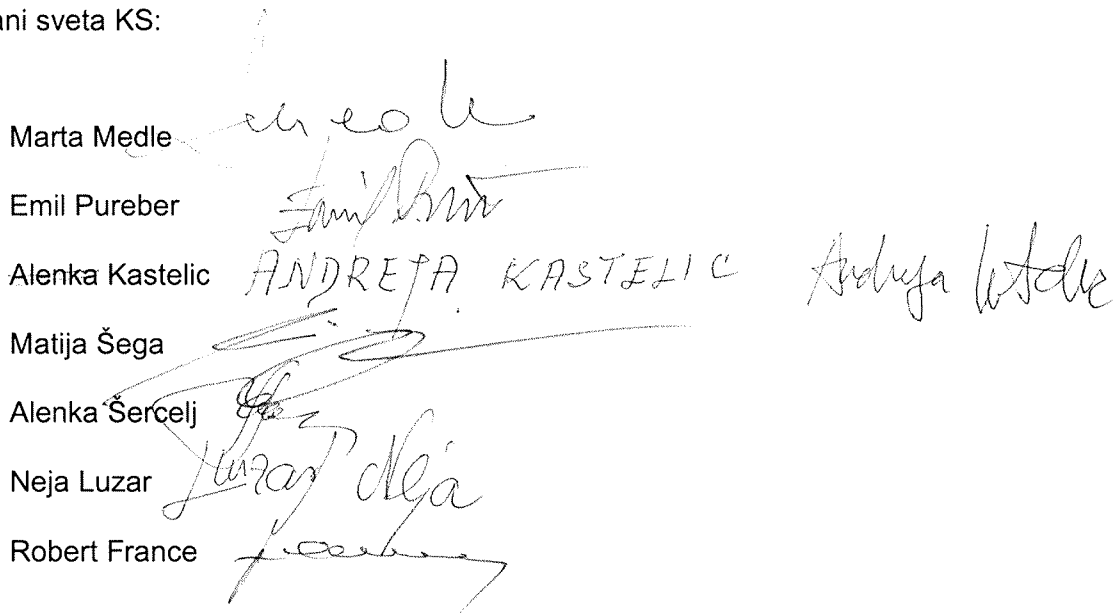 ani sveta KS:
Marta Medle
Emil Pureber Emil
Alenka Kastelic ANDREJA KASTELIC Andreja Kastelic
Matija Šega
Alenka Šercelj
Neja Luzar Luzar Neja
Robert France